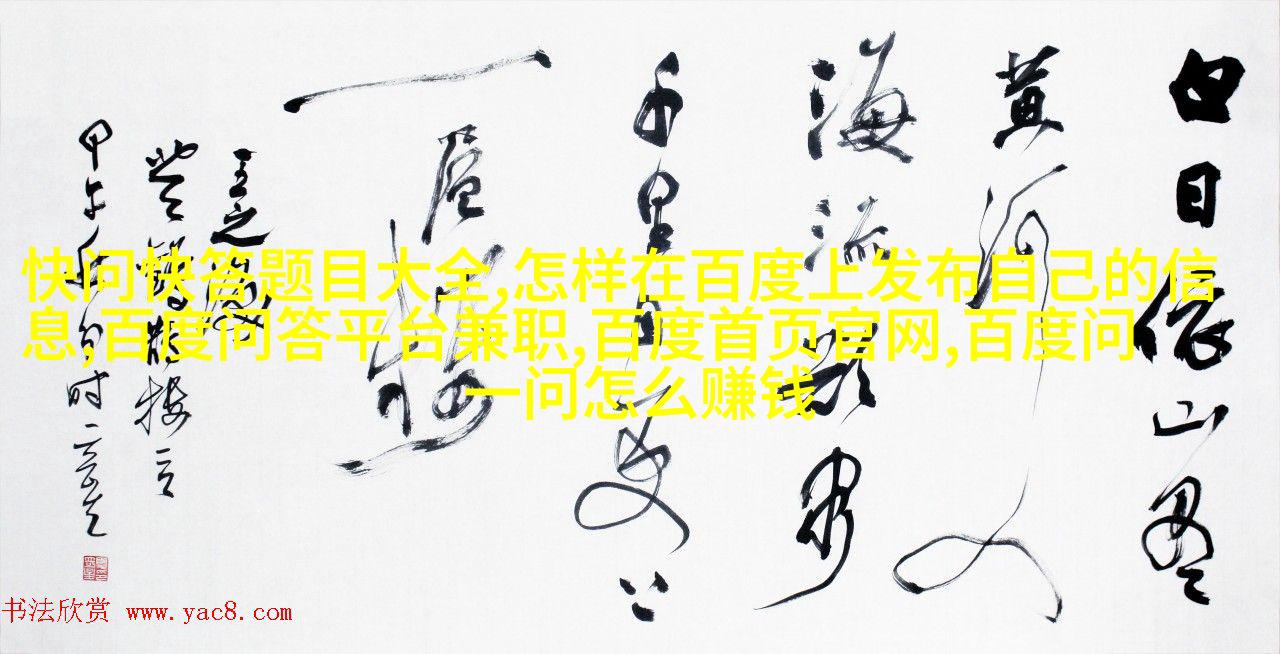 白日依山尽
黄河入
海流欲穷
千里目更上
一层楼
王之涣
登鹳雀楼
甲午年
快问快答题目大全,怎样在百度上发布自己的信
息,百度问答平台兼职,百度首页官网,百度问
一问怎么赚钱
书法欣赏 www.yac8.com